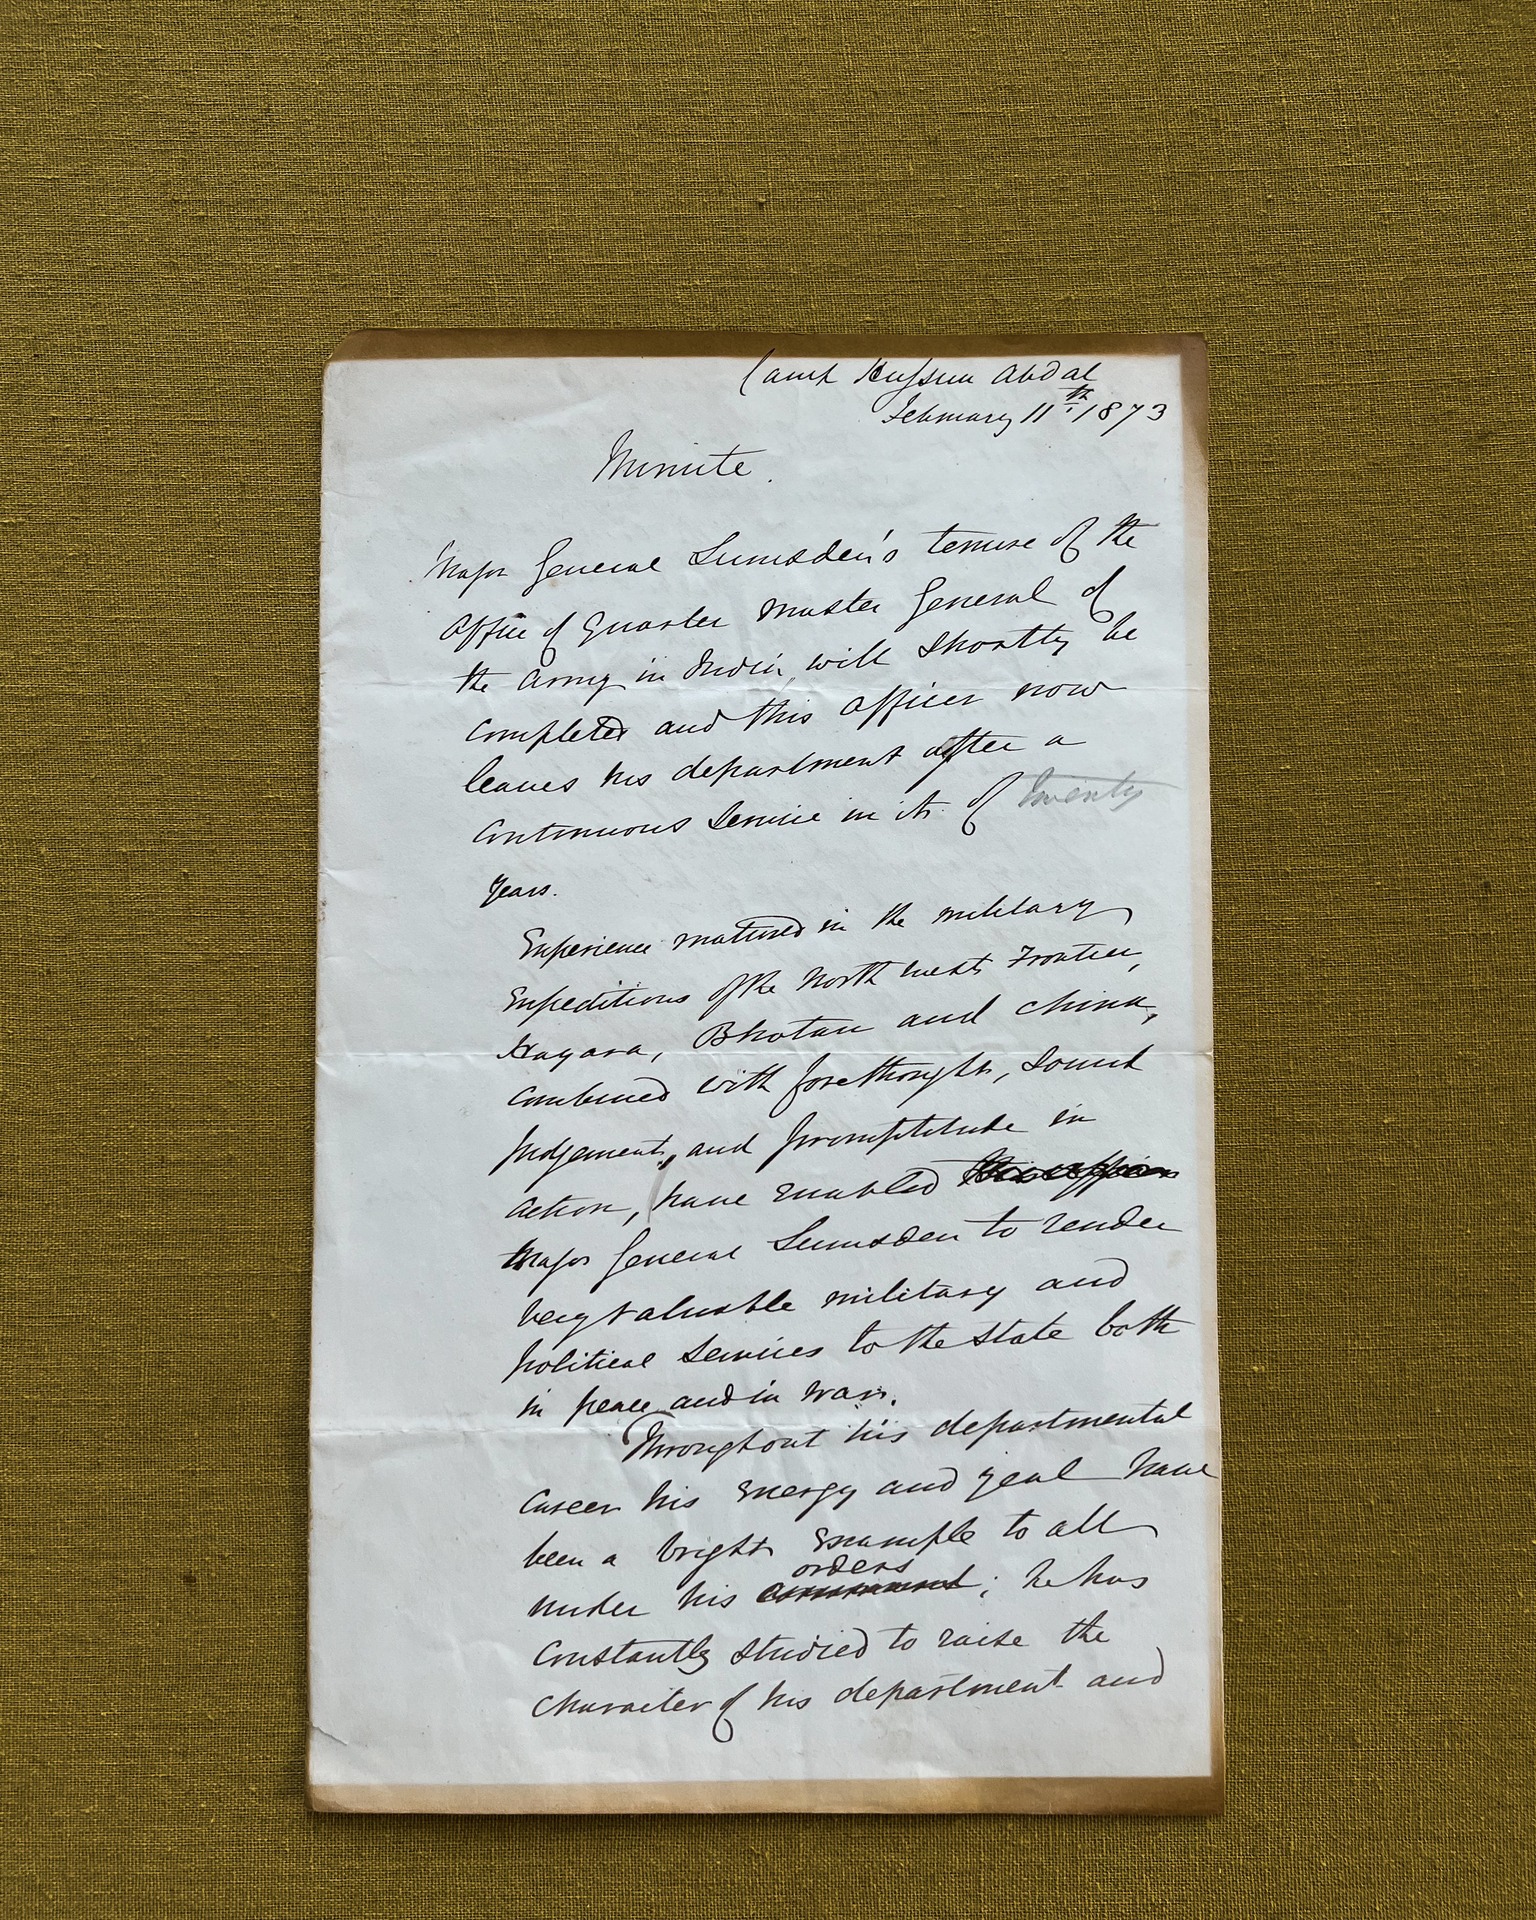 Camp Hussun Abdal
February 11th. 1873
Minute.
Major General Lumsden's tenure of the
Office of Quarter Master General of
the Army in India, will shortly be
completed and this officer now
leaves his department after a
continuous service in it. of twenty
years.
Experience matured in the military
Expeditions of the North West Frontier,
Hazara, Bhotan and China,
combined with forethought, sound
judgement, and promptitude in
action, have enabled this officer
Major General Lumsden to render
very valuable military and
political services to the state both
in peace and in war.
Throughout his departmental
career his energy and zeal have
been a bright example to all
orders
under his command; he has
constantly studied to raise the
character of his department and